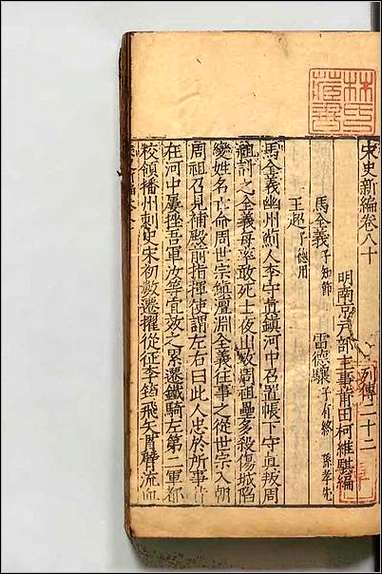 宋史新編卷八十
列傳二十二
明南京户部主事莆田柯維騏編
馬全義子知節
雷德驤子有終 孫孝先
王超子德用
馬全義幽州薊人李守貞鎮河中召置帳下守貞叛周
祖討之全義每率敢死士夜出攻周祖壘多殺傷城陷
變姓名亡命周世宗鎮澶淵全義往事之從世宗入朝
周祖乃見補殿前指揮使謂左右曰此人忠於所事昔
在河中屢挫吾軍汝等宜效之累遷鐵騎左第二軍都
校領播州刺史宋初數遷擢從征李筠飛矢貫臂流血